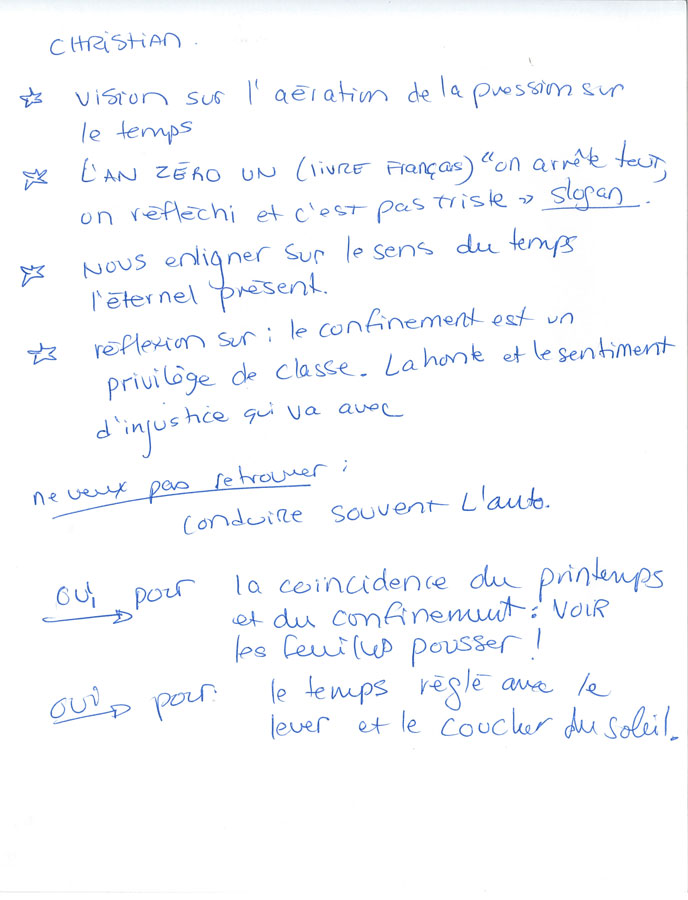 CHRISTIAN.
☆ vision sur l'aération de la pression sur
le temps
☆ L'AN ZÉRO UN (LIVRE FRANÇAIS) "on arrête tout,
on réfléchi et c'est pas triste » slogan.
☆ NOUS enligner sur le sens du temps
l'éternel présent.
☆ réflexion sur : le confinement est un
privilège de classe. La honte et le sentiment
d'injustice qui va avec
ne veux pas retrouver :
conduire souvent L'auto.
oui pour la coincidence du printemps
et du confinement : VOIR
les feuilles pousser !
oui pour : le temps réglé avec le
lever et le coucher du soleil.